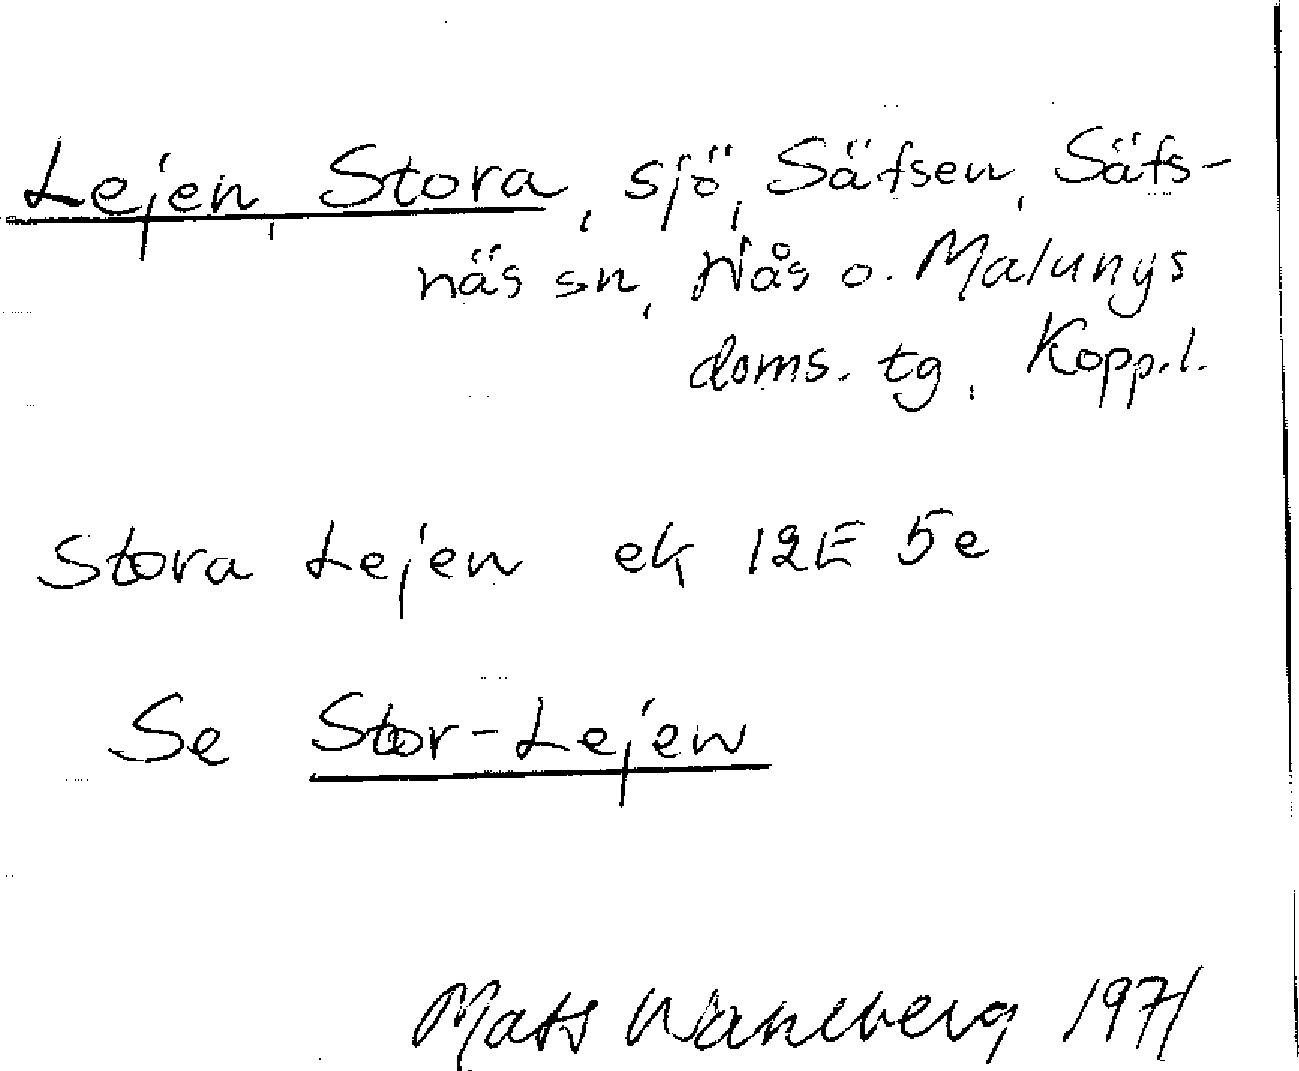 Lejen, Stora, sjö, Säfsen, Säfs-
näs sn, Nås o. Malungs
doms. tg, Kopp.l.
Stora Lejen ek 12E 5e
Se Stor-Lejen
Mats Wahlberg 1971